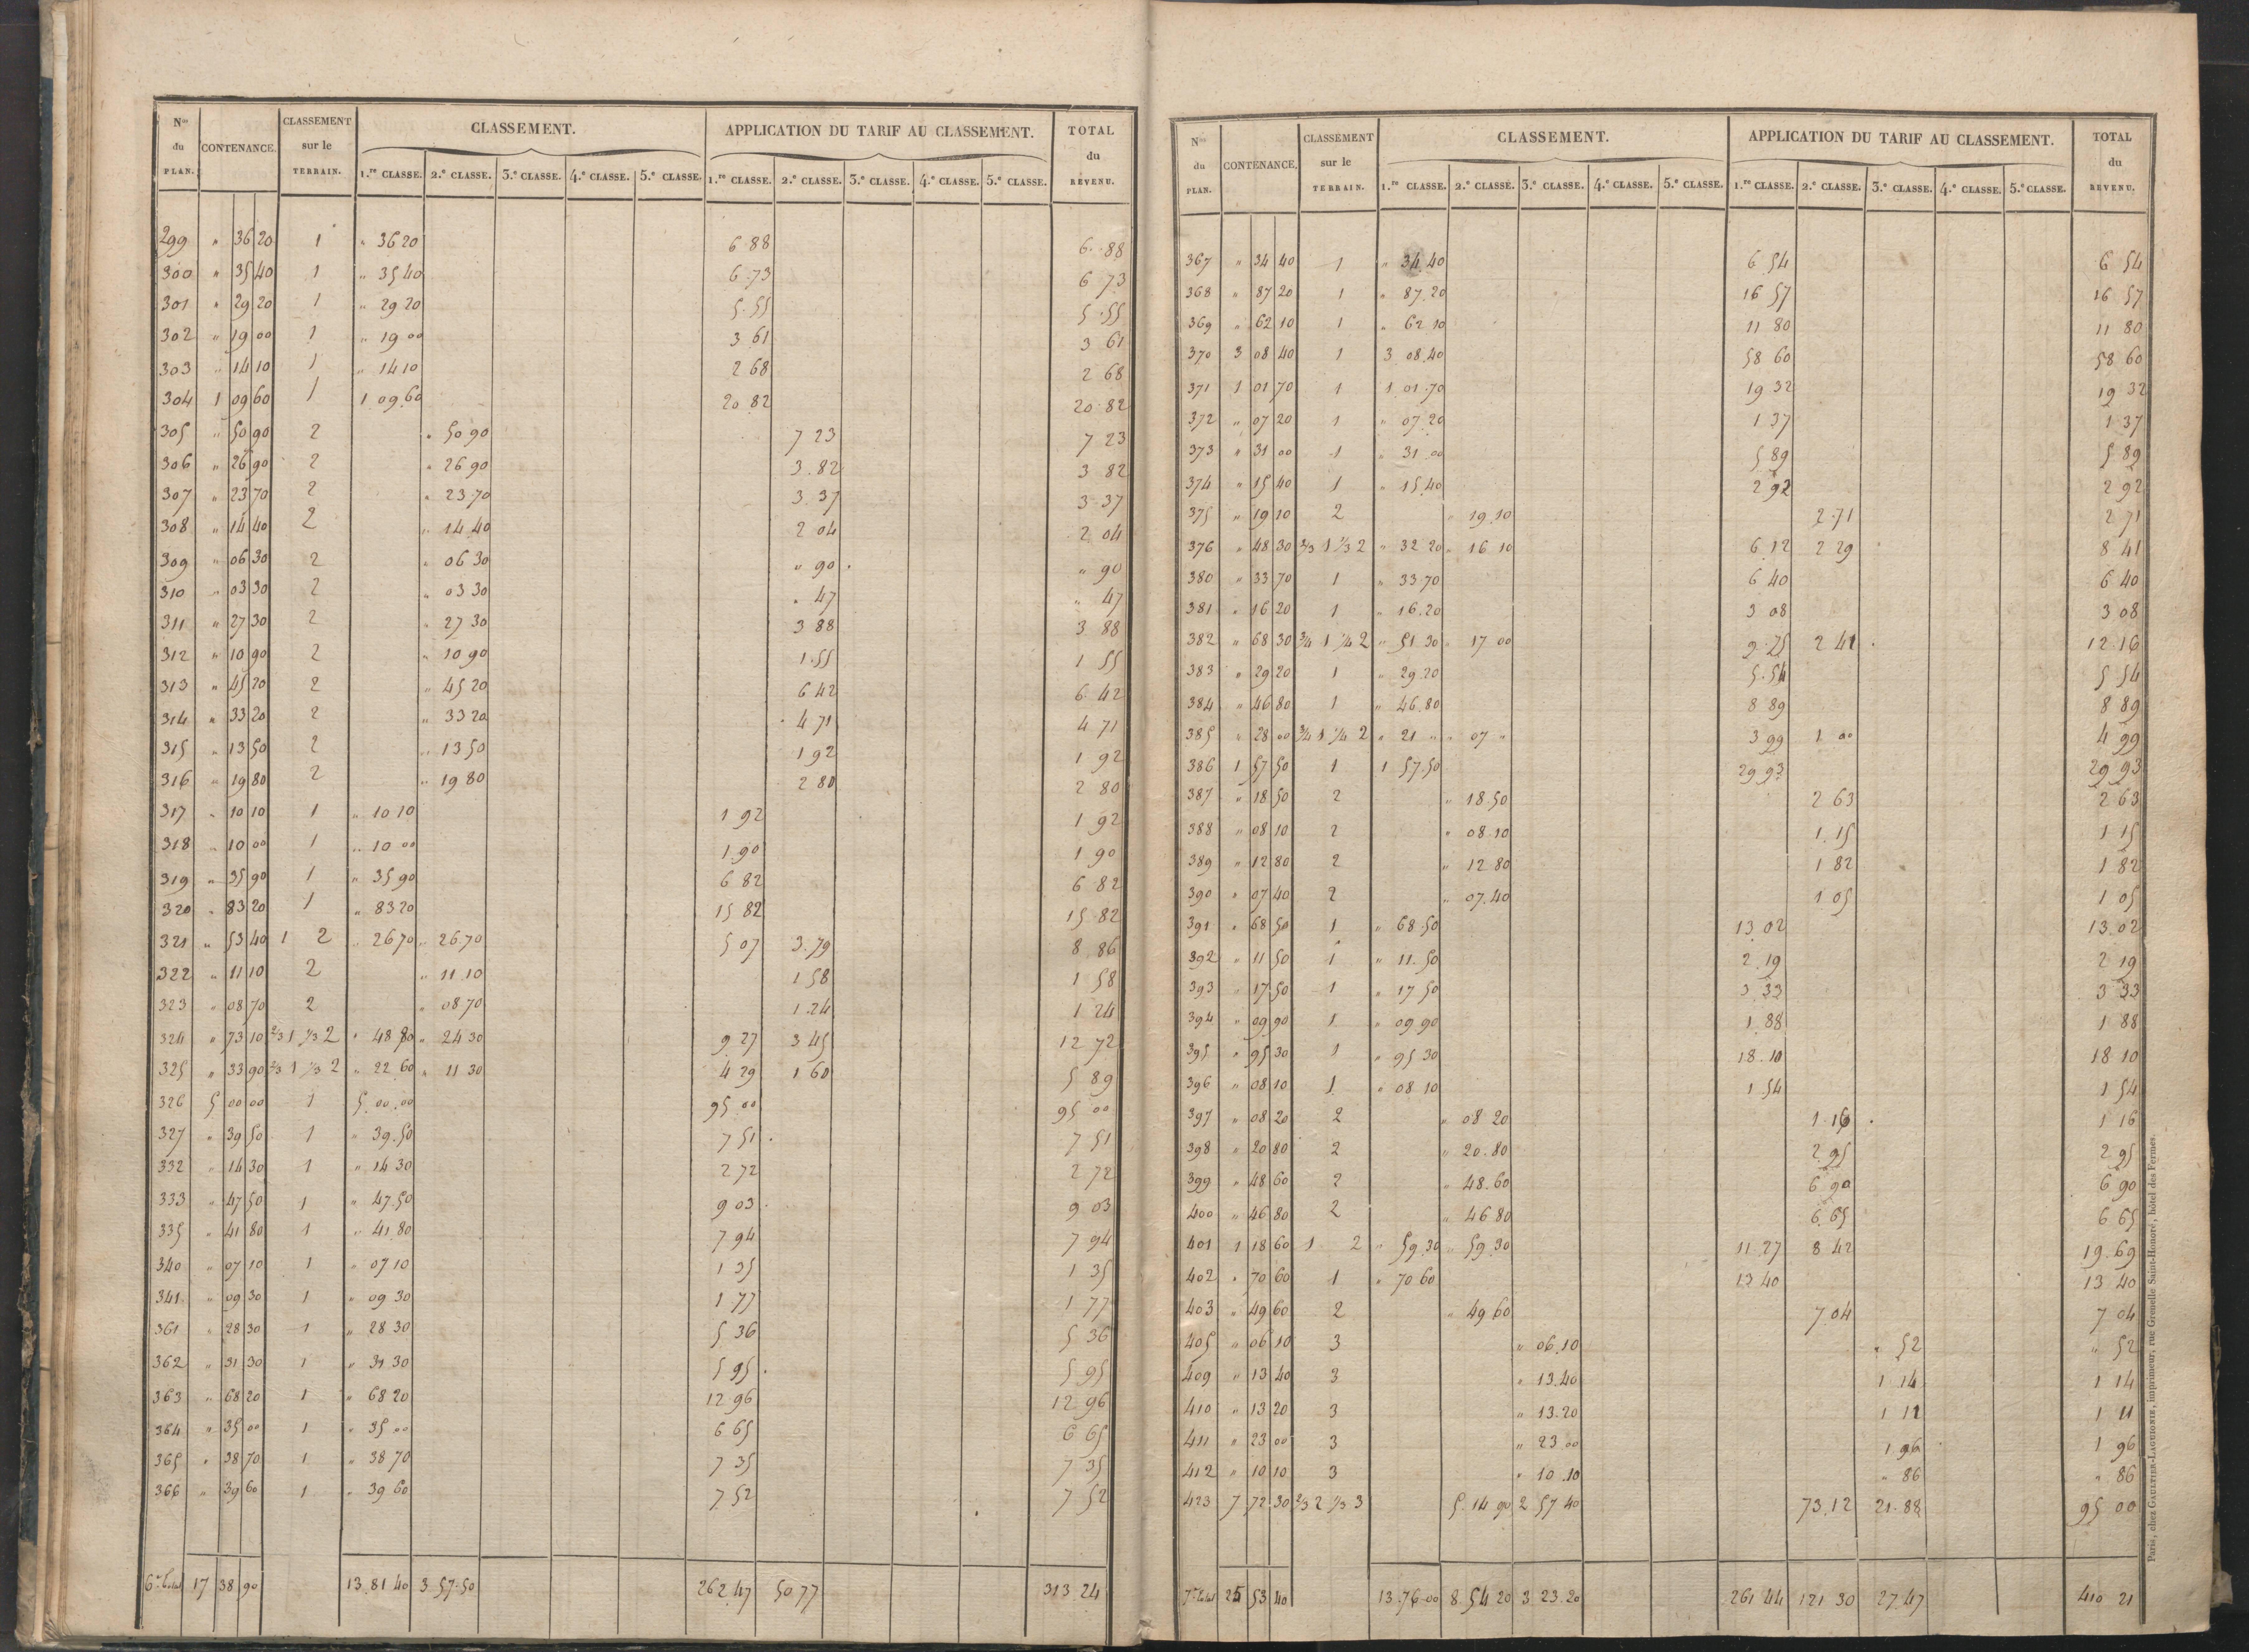 Nos du PLAN. CONTENANCE. CLASSEMENT sur le TERRAIN. CLASSEMENT. APPLICATION DU TARIF AU CLASSEMENT. TOTAL du REVENU.
1.re CLASSE. 2.e CLASSE. 3.e CLASSE. 4.e CLASSE. 5.e CLASSE. 1.re CLASSE. 2.e CLASSE. 3.e CLASSE. 4.e CLASSE. 5.e CLASSE.
299 " 36 20 1 " 36 20 6 88 6 88
300 " 35 40 1 " 35 40 6 73 6 73
301 " 29 20 1 " 29 20 5 55 5 55
302 " 19 00 1 " 19 00 3 61 3 61
303 " 14 10 1 " 14 10 2 68 2 68
304 1 09 60 1 1 09 60 20 82 20 82
305 " 50 90 2 " 50 90 7 23 7 23
306 " 26 90 2 " 26 90 3 82 3 82
307 " 23 70 2 " 23 70 3 37 3 37
308 " 14 40 2 " 14 40 2 04 2 04
309 " 06 30 2 " 06 30 " 90 " 90
310 " 03 30 2 " 03 30 " 47 " 47
311 " 27 30 2 " 27 30 3 88 3 88
312 " 10 90 2 " 10 90 1 55 1 55
313 " 45 20 2 " 45 20 6 42 6 42
314 " 33 20 2 " 33 20 4 71 4 71
315 " 13 50 2 " 13 50 1 92 1 92
316 " 19 80 2 " 19 80 2 80 2 80
317 " 10 10 1 " 10 10 1 92 1 92
318 " 10 00 1 " 10 00 1 90 1 90
319 " 35 90 1 " 35 90 6 82 6 82
320 " 83 20 1 " 83 20 15 82 15 82
321 " 53 40 1 2 " 26 70 " 26 70 5 07 3 79 8 86
322 " 11 10 2 " 11 10 1 58 1 58
323 " 08 70 2 " 08 70 1 24 1 24
324 " 73 10 2/3 1 1/3 2 " 48 80 " 24 30 9 27 3 45 12 72
325 " 33 90 2/3 1 1/3 2 " 22 60 " 11 30 4 29 1 60 5 89
326 5 00 00 1 5 00 00 95 00 95 00
327 " 39 50 1 " 39 50 7 51 7 51
332 " 14 30 1 " 14 30 2 72 2 72
333 " 47 50 1 " 47 50 9 03 9 03
335 " 41 80 1 " 41 80 7 94 7 94
340 " 07 10 1 " 07 10 1 35 1 35
341 " 09 30 1 " 09 30 1 77 1 77
361 " 28 30 1 " 28 30 5 36 5 36
362 " 31 30 1 " 31 30 5 95 5 95
363 " 68 20 1 " 68 20 12 96 12 96
364 " 35 00 1 " 35 00 6 65 6 65
365 " 38 70 1 " 38 70 7 35 7 35
366 " 39 60 1 " 39 60 7 52 7 52
6e total 17 38 90 13 81 40 3 57 50 262 47 50 77 313 24
Nos du PLAN. CONTENANCE. CLASSEMENT sur le TERRAIN. CLASSEMENT. APPLICATION DU TARIF AU CLASSEMENT. TOTAL du REVENU.
1.re CLASSE. 2.e CLASSE. 3.e CLASSE. 4.e CLASSE. 5.e CLASSE. 1.re CLASSE. 2.e CLASSE. 3.e CLASSE. 4.e CLASSE. 5.e CLASSE.
367 " 34 40 1 " 34 40 6 54 6 54
368 " 87 20 1 " 87 20 16 57 16 57
369 " 62 10 1 " 62 10 11 80 11 80
370 3 08 40 1 3 08 40 58 60 58 60
371 1 01 70 1 1 01 70 19 32 19 32
372 " 07 20 1 " 07 20 1 37 1 37
373 " 31 00 1 " 31 00 5 89 5 89
374 " 15 40 1 " 15 40 2 92 2 92
375 " 19 10 2 " 19 10 2 71 2 71
376 " 48 30 2/3 1 1/3 2 " 32 20 " 16 10 6 12 2 29 8 41
380 " 33 70 1 " 33 70 6 40 6 40
381 " 16 20 1 " 16 20 3 08 3 08
382 " 68 30 3/4 1 1/4 2 " 51 30 " 17 00 9 75 2 41 12 16
383 " 29 20 1 " 29 20 5 54 5 54
384 " 46 80 1 " 46 80 8 89 8 89
385 " 28 00 3/4 1 1/4 2 " 21 " " 07 " 3 99 1 00 4 99
386 1 57 50 1 1 57 50 29 93 29 93
387 " 18 50 2 " 18 50 2 63 2 63
388 " 08 10 2 " 08 10 1 15 1 15
389 " 12 80 2 " 12 80 1 82 1 82
390 " 07 40 2 " 07 40 1 05 1 05
391 " 68 50 1 " 68 50 13 02 13 02
392 " 11 50 1 " 11 50 2 19 2 19
393 " 17 50 1 " 17 50 3 33 3 33
394 " 09 90 1 " 09 90 1 88 1 88
395 " 95 30 1 " 95 30 18 10 18 10
396 " 08 10 1 " 08 10 1 54 1 54
397 " 08 20 2 " 08 20 1 16 1 16
398 " 20 80 2 " 20 80 2 95 2 95
399 " 48 60 2 " 48 60 6 90 6 90
400 " 46 80 2 " 46 80 6 65 6 65
401 1 18 60 1 2 " 59 30 " 59 30 11 27 8 42 19 69
402 " 70 60 1 " 70 60 13 40 13 40
403 " 49 60 2 " 49 60 7 04 7 04
405 " 06 10 3 " 06 10 " 52 " 52
409 " 13 40 3 " 13 40 1 14 1 14
410 " 13 20 3 " 13 20 1 11 1 11
411 " 23 00 3 " 23 00 1 96 1 96
412 " 10 10 3 " 10 10 " 86 " 86
423 7 72 30 2/3 2 1/3 3 5 14 90 2 57 40 73 12 21 88 95 00
7e total 25 53 40 13 76 00 8 54 20 3 23 20 261 44 121 30 27 47 410 21
Paris, chez GAULTIER-LAGUIONIE, imprimeur, rue Grenelle Saint-Honoré, hôtel des Fermes.